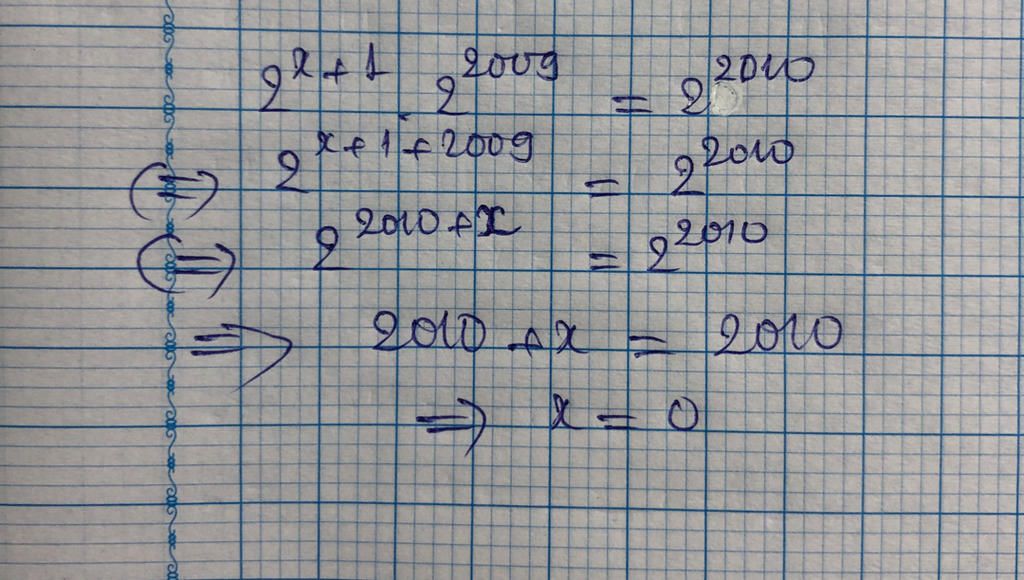 2^{x+1} 2^{2009} = 2^{2010}
(⇒) 2^{x+1+2009} = 2^{2010}
(⇒) 2^{2010+x} = 2^{2010}
⇒ 2010 + x = 2010
⇒ x = 0